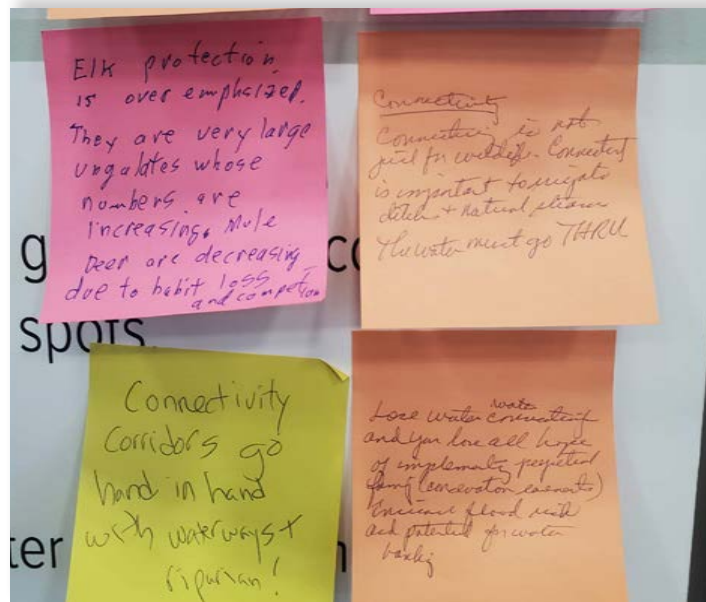 Elk protection
is over emphasized.
They are very large
ungulates whose
numbers are
increasing. Mule
Deer are decreasing
due to habit loss
and competition
Connectivity
Connectivity is not
just for wildlife. Connectivity
is important to irrigate
ditches + natural streams
The water must go THRU
g
co
spots.
Connectivity
Corridors go
hand in hand
with waterways +
riparian!
Lose water connectivity
and you lose all hope
of implementing perpetual
(conservation easements)
Increase flood risk
and potential for water
banking
ter
n